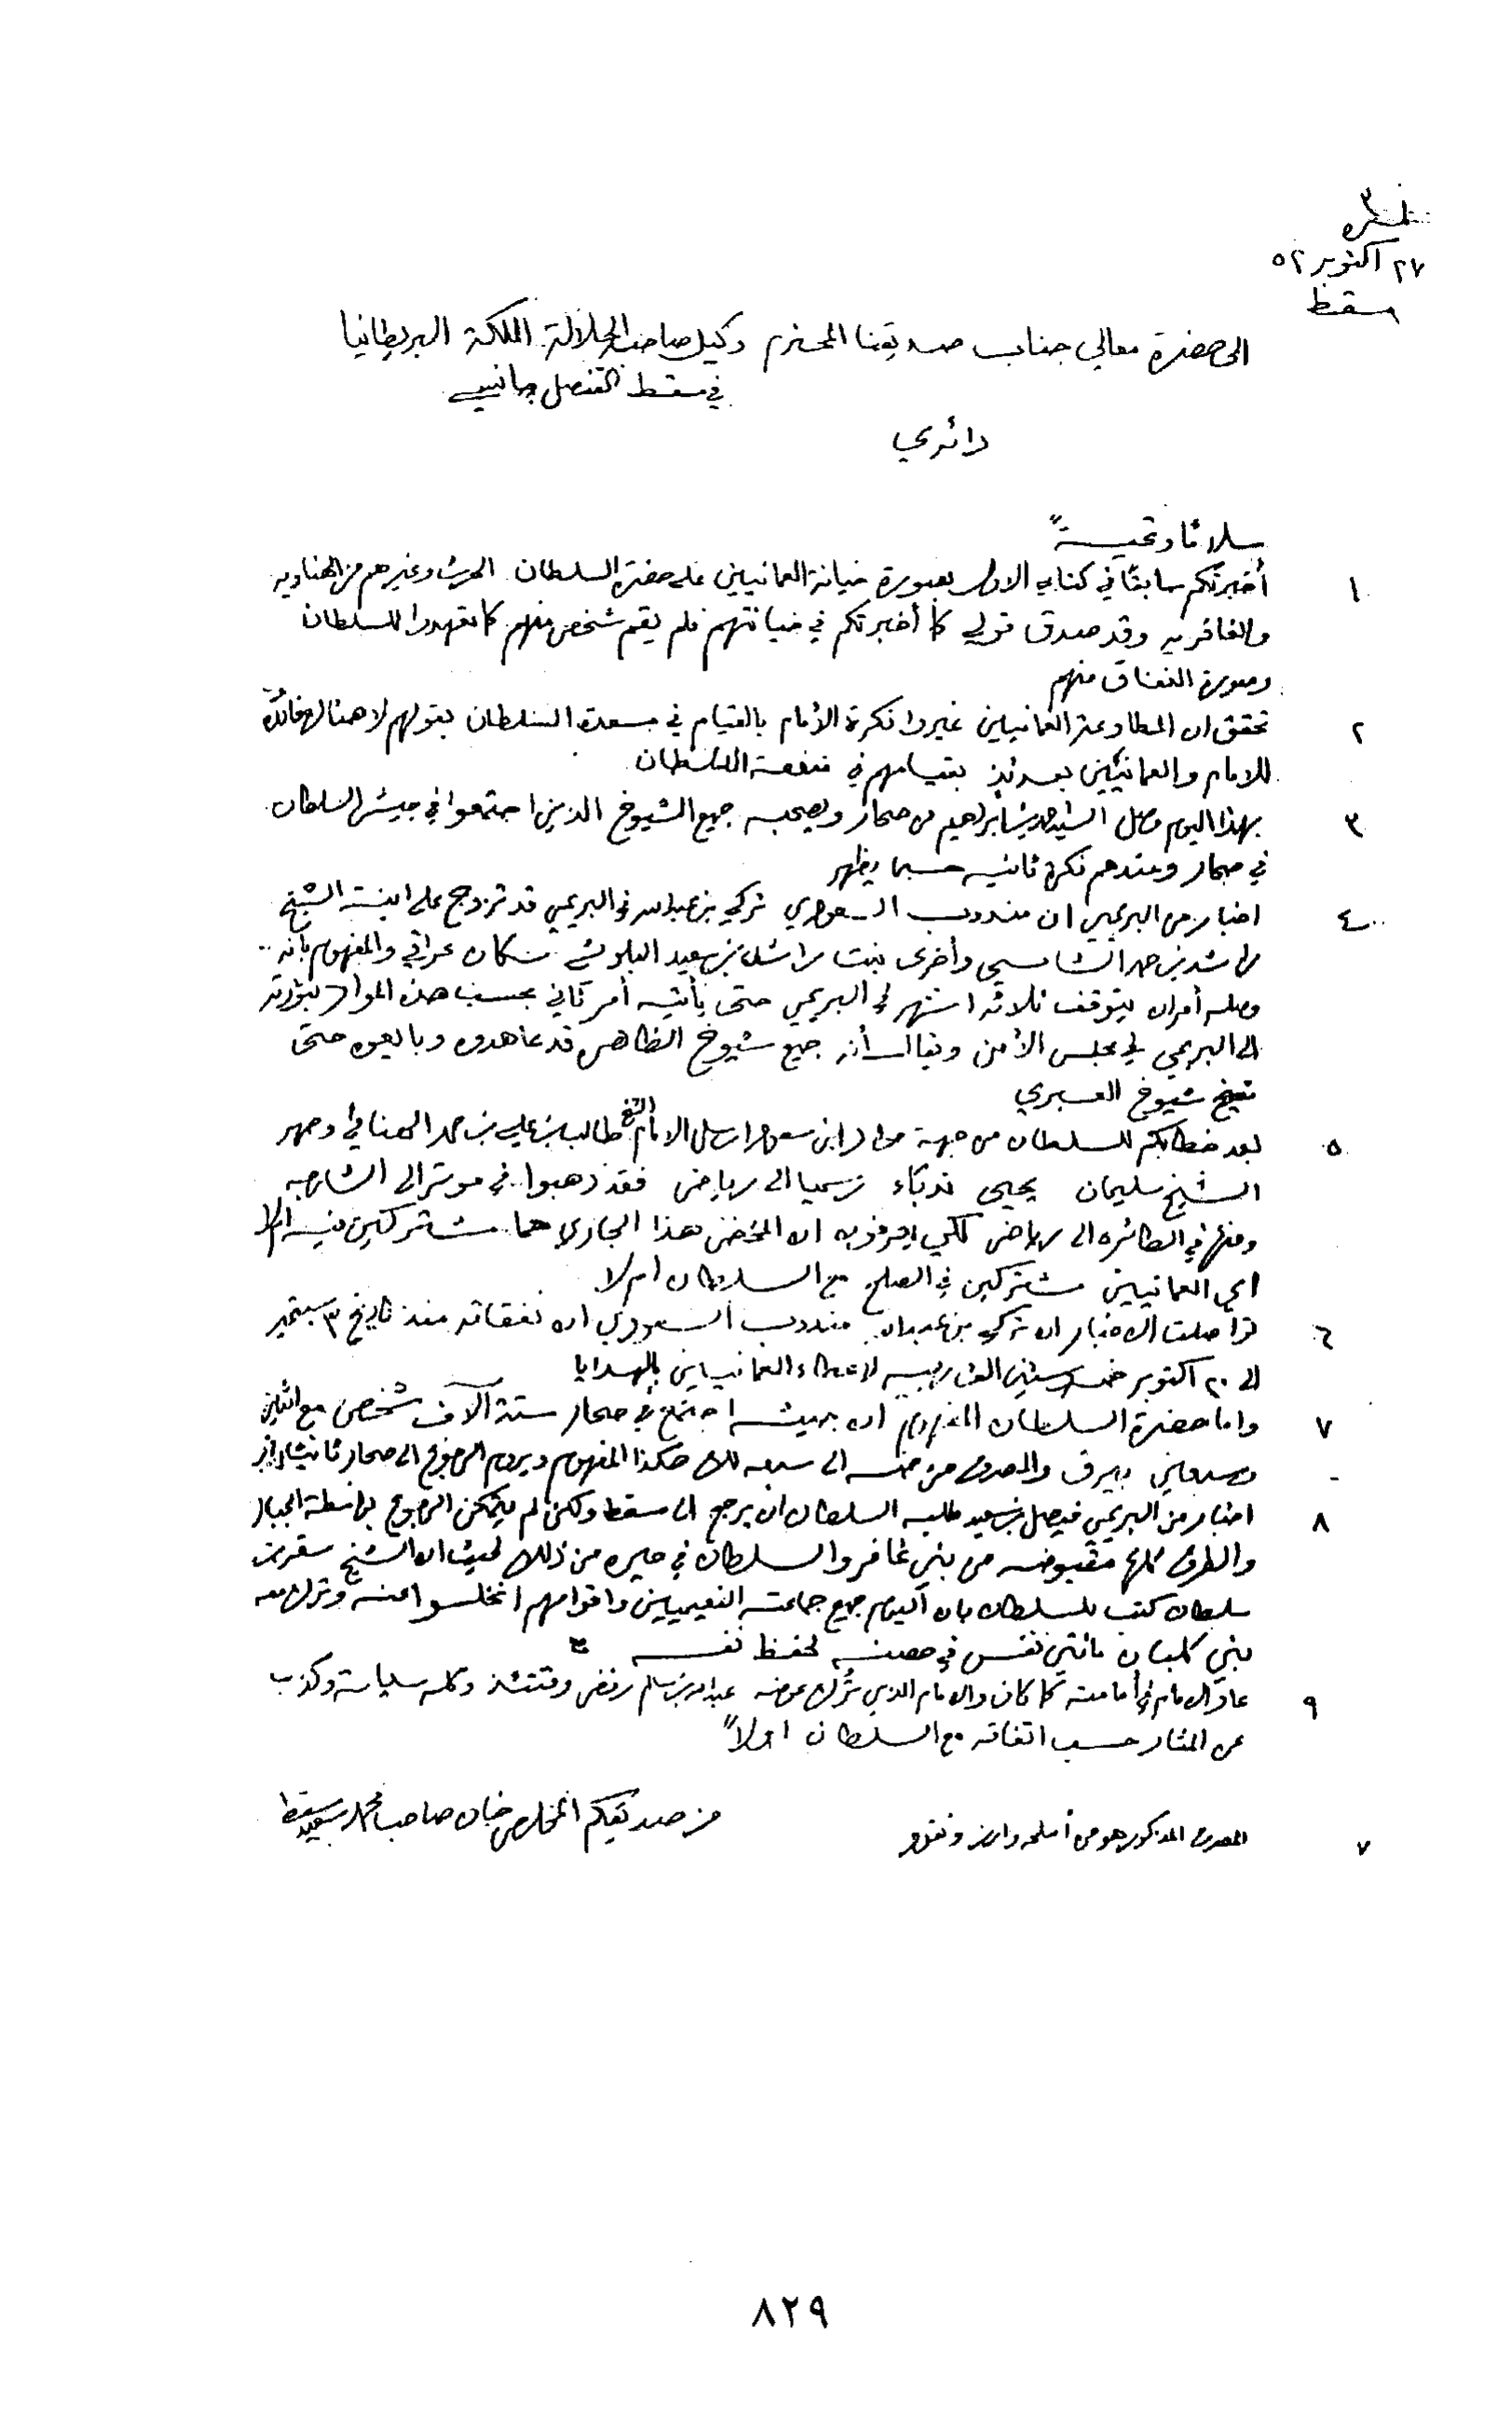 نمره ٣
٢٧ اكتوبر ٥٢
مسقط
الى حضرة معالي جناب صديقنا المحترم وكيل صاحب الجلالة الملكة البريطانيا
في مسقط القنصل
دائري
سلاما وتحيـــة
١ أخبرتكم سابقا في كتابي الاول بصورة خيانة العمانيين على حضرة السلطان الحرث وغيرهم من الهناويه
والغافريه وقد صدق قولي كما أخبرتكم في خيانتهم فلم يقم شخص منهم كما تعهدوا للسلطان
وصورة النفاق منهم
٢ تحقق ان المطاوعة العمانيين غيروا فكرة الأمام بالقيام في مسعدة السلطان بقولهم لا هنالهفائدة
للامام والعمانيين بعدئذ بقيامهم في منفعة السلطان
٣ بهذا اليوم وصل السيد احمد بن ابراهيم من صحار وبصحبه جميع الشيوخ الذين اجتمعوا في جيش السلطان
في صحار وعندهم فكرة ثانيه حسبما يظهر
٤ اخبار من البريمي ان مندوب السعودي تركي بن عبدالله في البريمي قد تزوج على ابنة الشيخ
راشد بن حمد الشامسي وأخرى بنت راشد بن سعيد البلوشي سكان عراقي والمفهوم بأنه
وصله أمران يتوقف ثلاثة اشهر في البريمي حتى يأتيه أمر ثاني بحسب هذه المواد
الى البريمي في مجلس الأمن ويقال أن جميع شيوخ الظاهره قد عاهدوه وبايعوه حتى
شيوخ العبري
٥ بعد خطابكم للسلطان من جهة مواد ابن سعود ارسل الامام الشيخ طالب بن علي بن حمد الهنائي وصهر
الشيخ سليمان يحيى رسميا الى رياض فقد ذهبوا في موتر الى الشارجه
ومنها في الطائره الى رياض لكي يعرفوه ان هذا الجاري هما مشتركين فيه ام لا
اي العمانيين مشتركين في الصلح مع السلطان ام لا
٦ تواصلت الاخبار ان تركي بن عبدالله مندوب السعودي ان نفقاته منذ تاريخ ٣ سبتمبر
الى ٢٠ اكتوبر خمس وستين الف ربيه لاعطاء العمانيين بالهدايا
٧ واما حضرة السلطان المفهوم ان جيشه اجتمع في صحار ستة آلاف شخص مع اثنين
وسبعين بيرق والمصرف من خمسه الى سبعه لك هكذا المفهوم ويروم الرجوع الى صحار ثانيا
٨ اخبار من البريمي فيصل بن سعيد طلبه السلطان ان يرجع الى مسقط ولكن لم يتمكن الرجوع بواسطة الجبال
والطرق كلها مقبوضه من بني غافر والسلطان في حيره من ذلك بحيث ان الشيخ صقر بن
سلطان كتب للسلطان بان اليوم جميع جماعته النعيميين واقوامهم انخلسوا عنه وترك معه
بني كلبان مائتي نفس في حصنه لحفظ نفسه
٩ عاد الامام في أمامته كما كان والامام الذي ترك عوضه عبدالله بن سالم رفض وقتئذ وكله سياسة وكذب
عن حسب اتفاقه مع السلطان اولاً
من صديقكم المخلص خان صاحب محمد سعيد مسقط
٧ المصرف المذكور هو من أسلحه وارز ونقود
٨٢٩